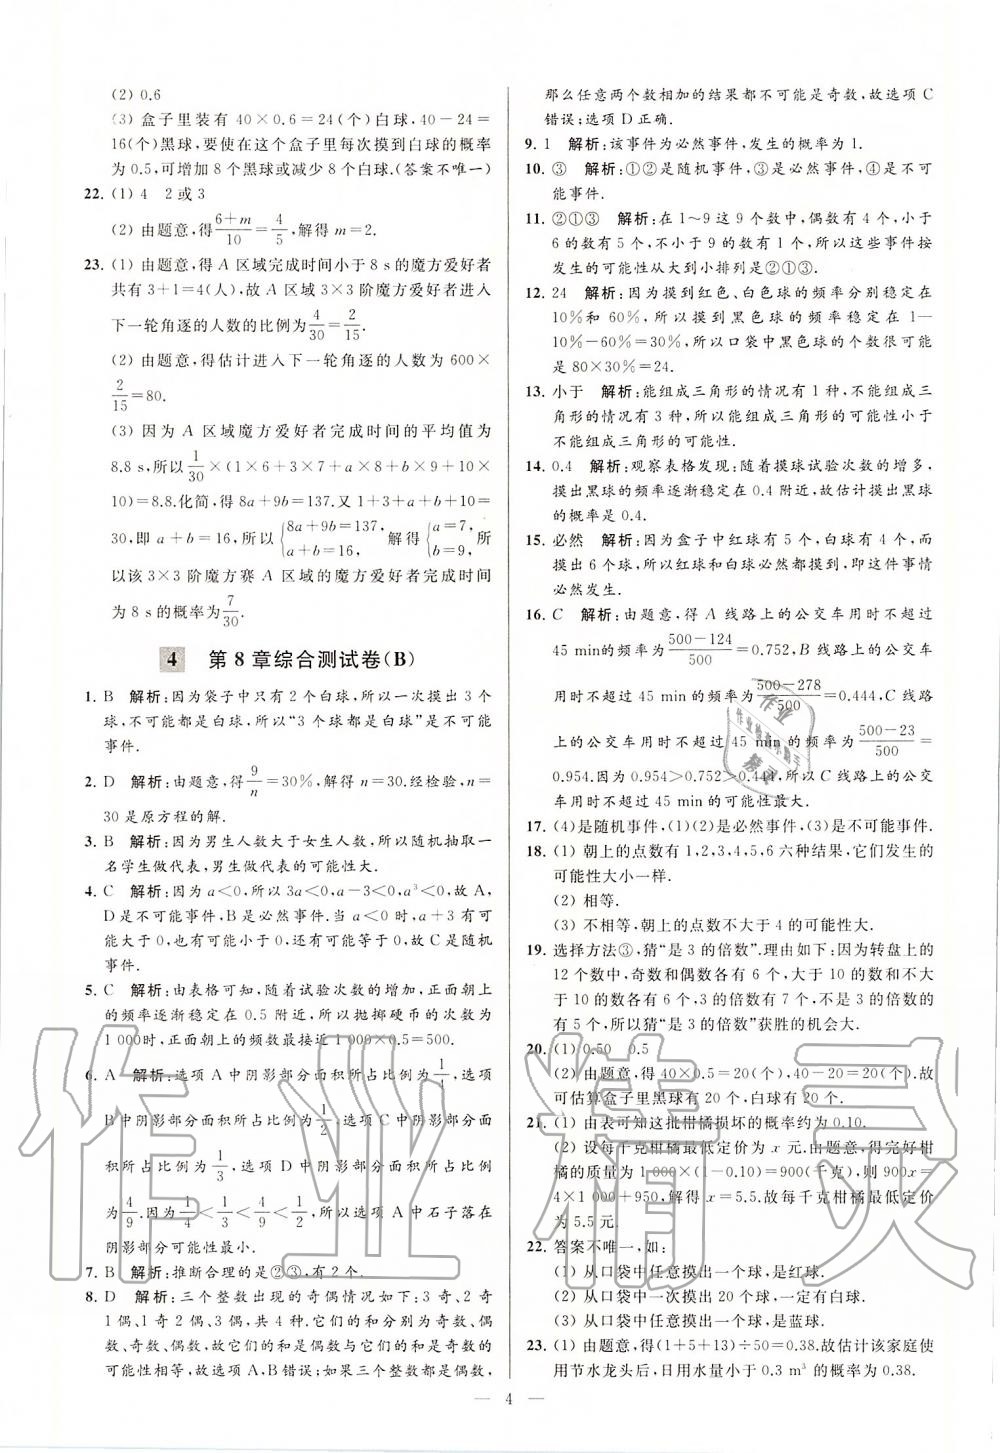 (2) 0.6
(3) 盒子里装有 40×0.6=24(个)白球,40-24=
16(个)黑球,要使在这个盒子里每次摸到白球的概率
为 0.5,可增加 8 个黑球或减少 8 个白球.(答案不唯一)
22. (1) 4 2 或 3
(2) 由题意,得 (6+m)/10 = 4/5,解得 m=2.
23. (1) 由题意,得 A 区域完成时间小于 8 s 的魔方爱好者
共有 3+1=4(人),故 A 区域 3×3 阶魔方爱好者进入
下一轮角逐的人数的比例为 4/30 = 2/15.
(2) 由题意,得估计进入下一轮角逐的人数为 600×
2/15=80.
(3) 因为 A 区域魔方爱好者完成时间的平均值为
8.8 s,所以 1/30 ×(1×6+3×7+a×8+b×9+10×
10)=8.8.化简,得 8a+9b=137.又 1+3+a+b+10=
30,即 a+b=16,所以 {8a+9b=137, a+b=16, 解得 {a=7, b=9, 所
以该 3×3 阶魔方赛 A 区域的魔方爱好者完成时间
为 8 s 的概率为 7/30.
4 第 8 章综合测试卷(B)
1. B 解析:因为袋子中只有 2 个白球,所以一次摸出 3 个
球,不可能都是白球,所以“3 个球都是白球”是不可能
事件.
2. D 解析:由题意,得 9/n=30%,解得 n=30.经检验,n=
30 是原方程的解.
3. B 解析:因为男生人数大于女生人数,所以随机抽取一
名学生做代表,男生做代表的可能性大.
4. C 解析:因为 a<0,所以 3a<0,a-3<0,a³<0,故 A、
D 是不可能事件,B 是必然事件.当 a<0 时,a+3 有可
能大于 0,也有可能小于 0,还有可能等于 0,故 C 是随机
事件.
5. C 解析:由表格可知,随着试验次数的增加,正面朝上
的频率逐渐稳定在 0.5 附近,所以抛掷硬币的次数为
1 000时,正面朝上的频数最接近 1 000×0.5=500.
6. A 解析:选项 A 中阴影部分面积所占比例为 1/4,选项
B 中阴影部分面积所占比例为 1/2,选项 C 中阴影部分面
积所占比例为 1/3,选项 D 中阴影部分面积所占比例
为 4/9.因为 1/4<1/3<4/9<1/2,所以选项 A 中石子落在
阴影部分可能性最小.
7. B 解析:推断合理的是②③,有 2 个.
8. D 解析:三个整数出现的奇偶情况如下:3 奇、2 奇
1 偶、1 奇 2 偶、3 偶,共 4 种,它们的和分别为奇数、偶
数、奇数、偶数,故它们的和是偶数与它们的和是奇数的
可能性相等,故选项 A、B 错误;如果三个整数都是偶数,
那么任意两个数相加的结果都不可能是奇数,故选项 C
错误;选项 D 正确.
9. 1 解析:该事件为必然事件,发生的概率为 1.
10. ③ 解析:①②是随机事件,③是必然事件,④是不可
能事件.
11. ②①③ 解析:在 1～9 这 9 个数中,偶数有 4 个,小于
6 的数有 5 个,不小于 9 的数有 1 个,所以这些事件按
发生的可能性从大到小排列是②①③.
12. 24 解析:因为摸到红色、白色球的频率分别稳定在
10%和 60%,所以摸到黑色球的频率稳定在 1—
10%-60%=30%,所以口袋中黑色球的个数很可能
是 80×30%=24.
13. 小于 解析:能组成三角形的情况有 1 种,不能组成三
角形的情况有 3 种,所以能组成三角形的可能性小于
不能组成三角形的可能性.
14. 0.4 解析:观察表格发现:随着摸球试验次数的增多,
摸出黑球的频率逐渐稳定在 0.4 附近,故估计摸出黑球
的概率是 0.4.
15. 必然 解析:因为盒子中红球有 5 个,白球有 4 个,所以
摸出 6 个球,红球和白球必然都摸到,即这件事情
必然发生.
16. C 解析:由题意,得 A 线路上的公交车用时不超过
45 min 的频率为 (500-124)/500=0.752,B 线路上的公交车
用时不超过 45 min 的频率为 (500-278)/500=0.444,C 线路
上的公交车用时不超过 45 min 的频率为 (500-23)/500=
0.954.因为 0.954>0.752>0.444,所以 C 线路上的公交
车用时不超过 45 min 的可能性最大.
17. (4)是随机事件,(1)(2)是必然事件,(3)是不可能事件.
18. (1) 朝上的点数有 1,2,3,4,5,6 六种结果,它们发生的
可能性大小一样.
(2) 相等.
(3) 不相等.朝上的点数不大于 4 的可能性大.
19. 选择方法③,猜“是 3 的倍数”.理由如下:因为转盘上的
12 个数中,奇数和偶数各有 6 个,大于 10 的数和不大
于 10 的数各有 6 个,3 的倍数有 7 个,不是 3 的倍数的
有 5 个,所以猜“是 3 的倍数”获胜的机会大.
20. (1) 0.50 0.5
(2) 由题意,得 40×0.5=20(个),40-20=20(个).故
可估算盒子里黑球有 20 个,白球有 20 个.
21. (1) 由表可知这批柑橘损坏的概率约为 0.10.
(2) 设每千克柑橘最低定价为 x 元.由题意,得完好柑
橘的质量为 1 000×(1-0.10)=900(千克),则 900x=
4×1 000+950,解得 x=5.5.故每千克柑橘最低定价
为 5.5 元.
22. 答案不唯一,如:
(1) 从口袋中任意摸出一个球,是红球.
(2) 从口袋中一次摸出 20 个球,一定有白球.
(3) 从口袋中任意摸出一个球,是蓝球.
23. (1) 由题意,得(1+5+13)÷50=0.38.故估计该家庭使
用节水龙头后,日用水量小于 0.3 m³ 的概率为 0.38.
— 4 —
作业精灵